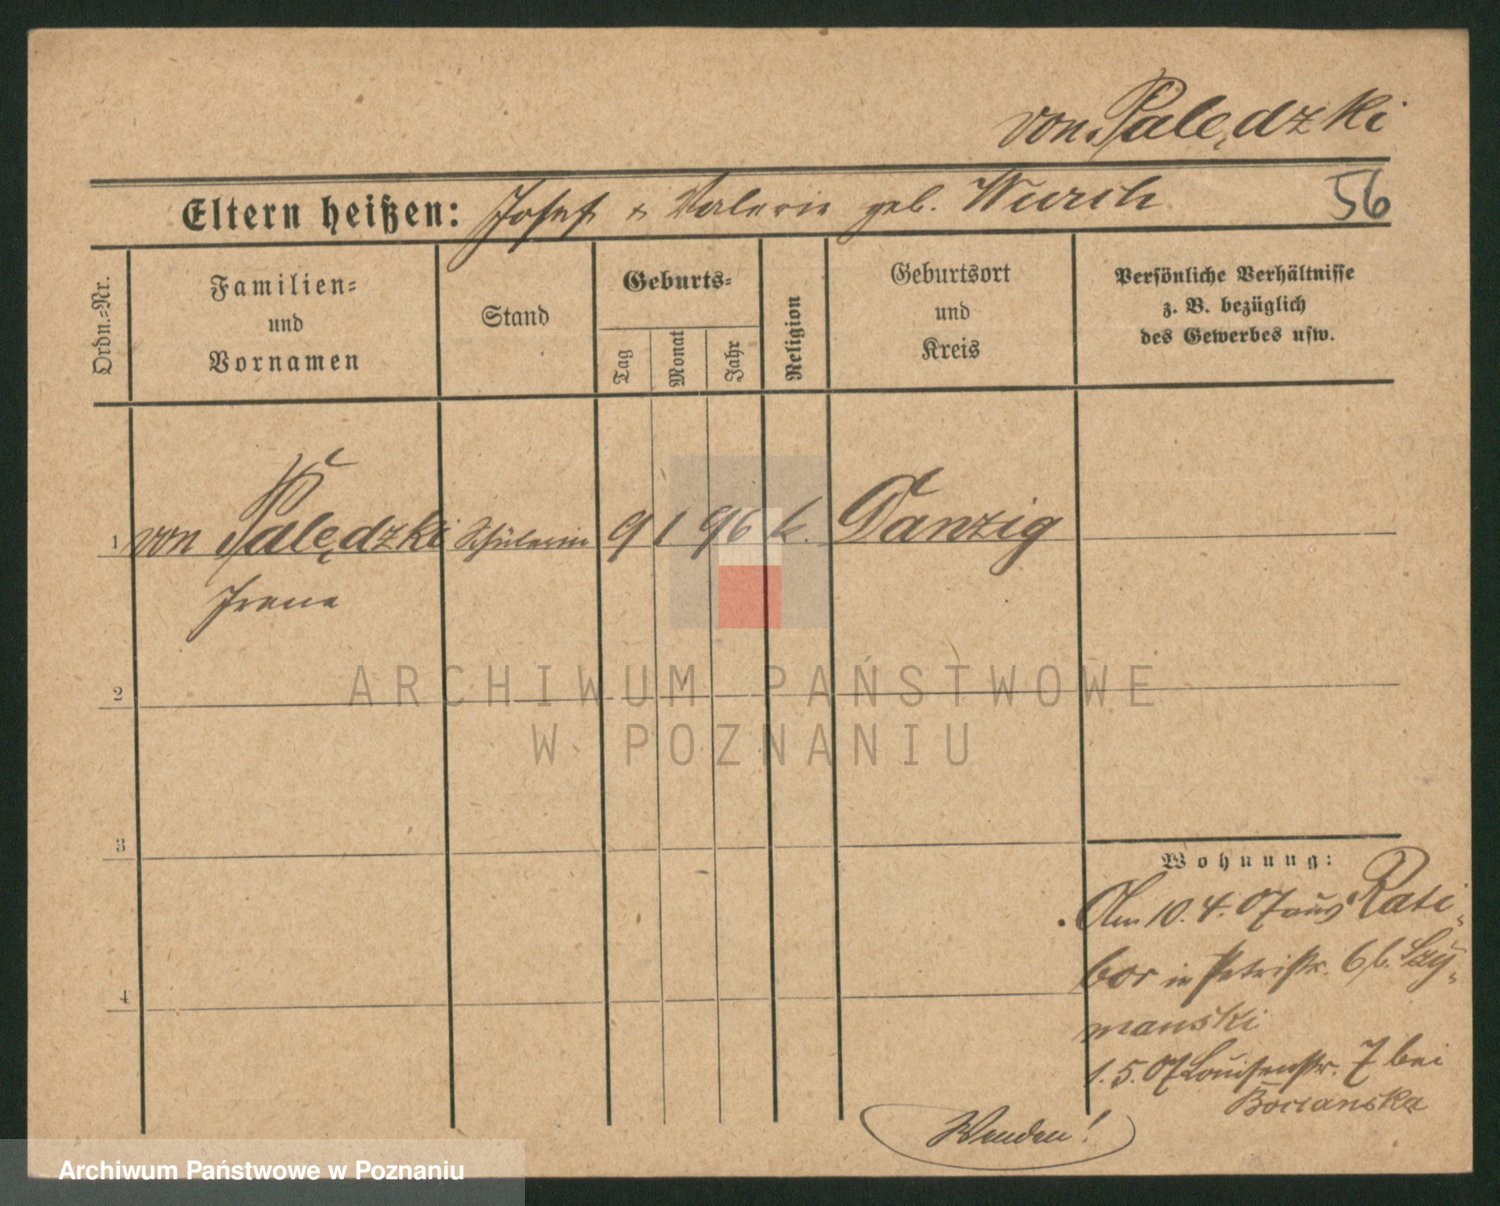 von Palędzki
Eltern heißen: Josef & Valerie geb. Wursch
56
Ordn.-Nr.
Familien-
und
Vornamen
Stand
Geburts-
Tag
Monat
Jahr
Religion
Geburtsort
und
Kreis
Persönliche Verhältnisse
z. B. bezüglich
des Gewerbes usw.
1 von Palędzki Schülerin 9 1 96 k. Danzig
Irene
2
3
4
Wohnung:
Am 10.4.07 aus Rati-
bor in Petristr. 6 b. Szy-
manski
1.5.07 Louisenstr. 7 bei
Bocianska
Wenden!
ARCHIWUM PAŃSTWOWE
W POZNANIU
Archiwum Państwowe w Poznaniu